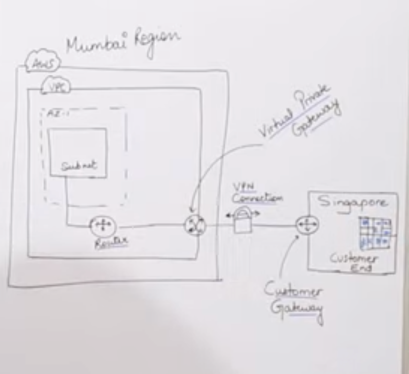 Mumbai Region
AWS
VPC
AZ-1
Subnet
Router
Virtual Private
Gateway
VPN
Connection
Singapore
Customer
End
Customer
Gateway